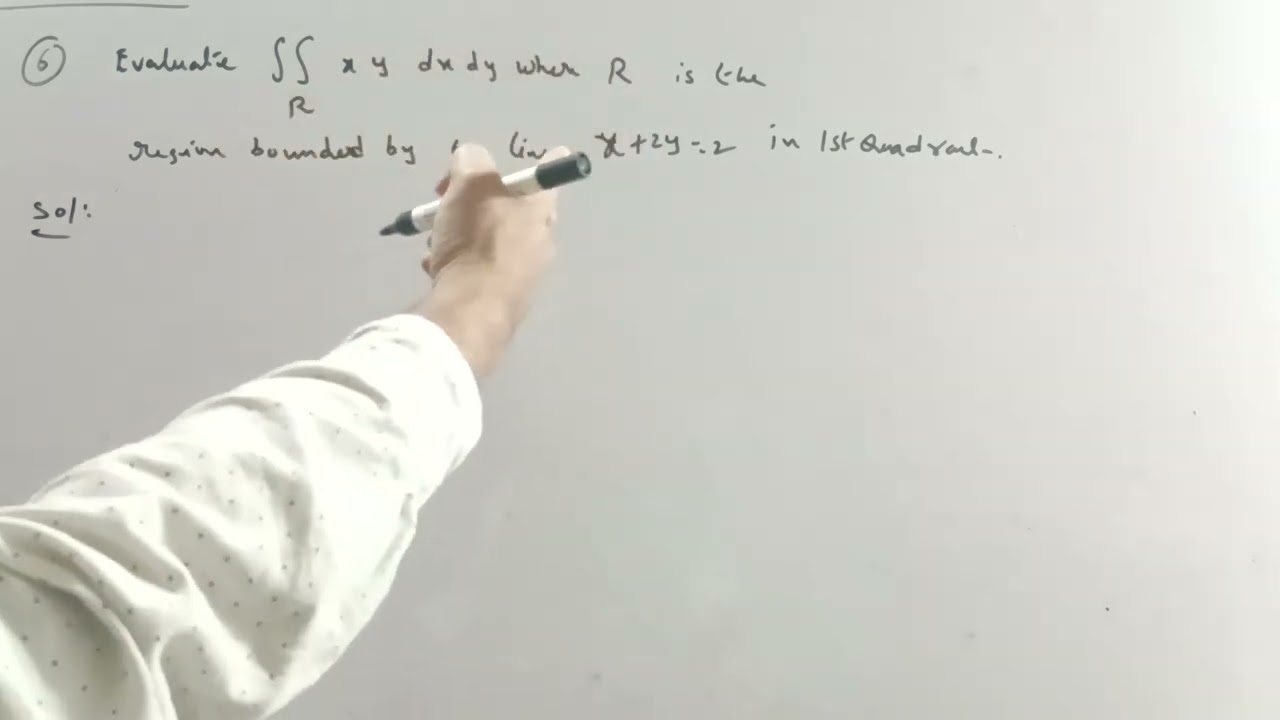 6 Evaluate ∬ x y dx dy where R is the
R
region bounded by x+2y=2 in 1st Quadrant.
Sol: